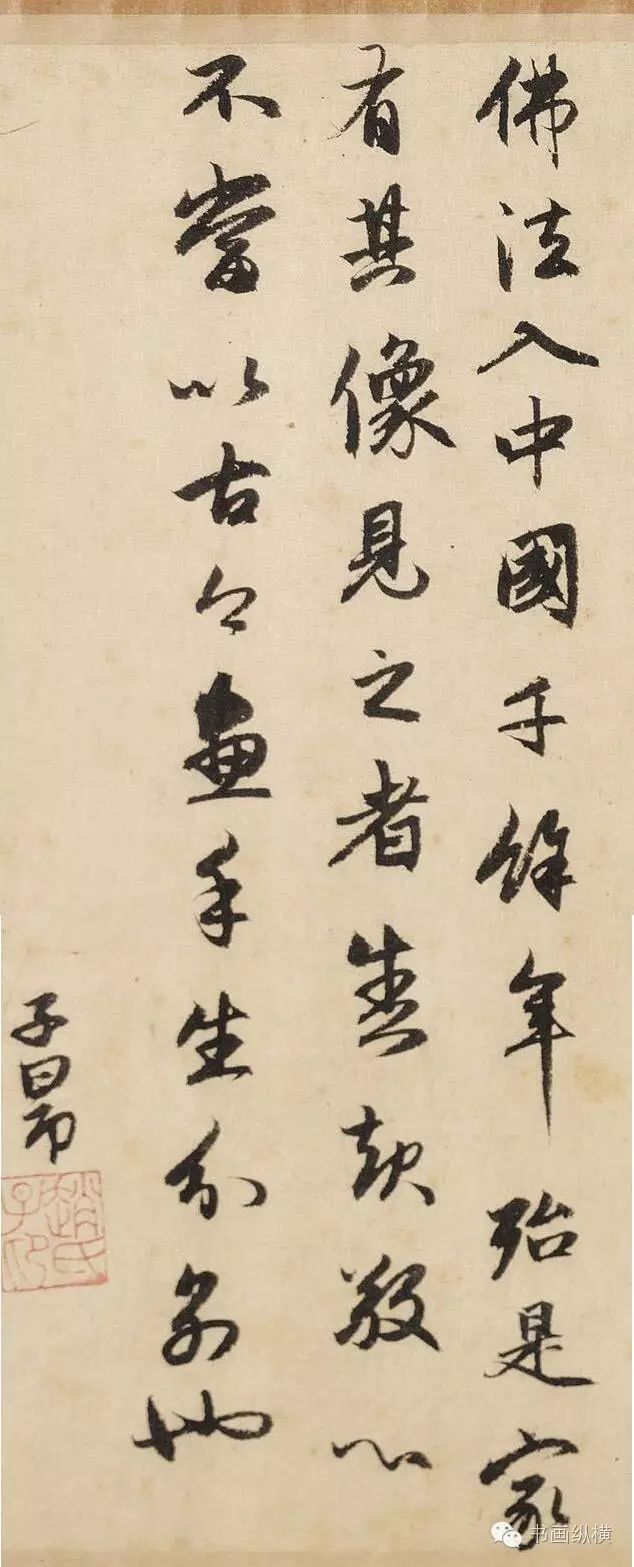 佛法入中國千餘年殆是家
有其像見之者悉起敬心
不當以古今畫手生分別也
子昂
趙氏子昂
书画纵横